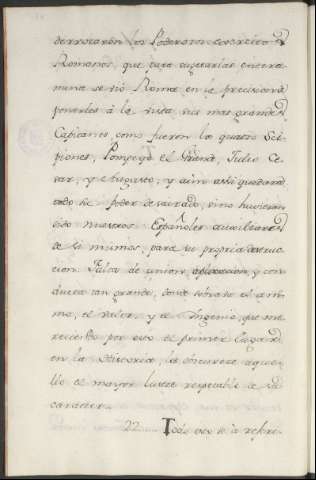 derrotaron los Poderosos exercitos
Romanos, que para sugetarlas entera
mente se vió Roma en la precision de
ponerles á la vista sus mas grandes
Capitanes como fueron los quatro Sci
piones, Pompeyo el Grande, Julio Ce
sar, y Augusto, y aun assi quedara
todo su poder desairado, sino huvieran
sido nuestros Españoles auxiliares
de si mismos, para su propria destruc
cion. Falta de union, y con
ducta tan grande, donde sobraba el ani
mo, el valor, y el Ingenio, que me
recieron por esto el primer lugar
en la Historia, les obscurece aque
llo el mayor lustre respetable de su
caracter.
22 Toda vez se à refre-